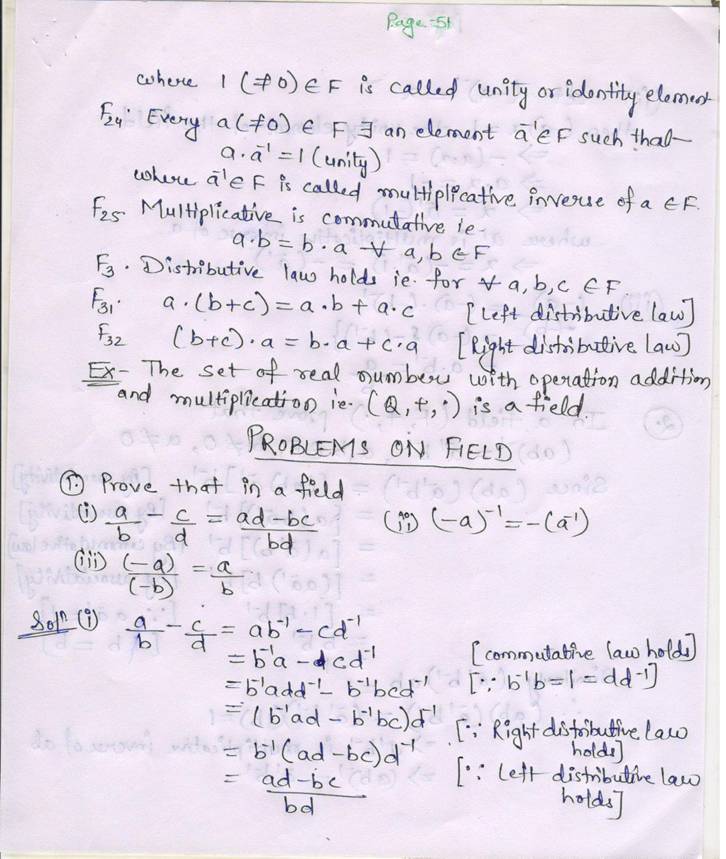 Page-51
where 1 (≠0) ∈ F is called unity or identity element
F₂₄. Every a(≠0) ∈ F ∃ an element a⁻¹∈F such that
a.a⁻¹ = 1 (unity)
where a⁻¹∈F is called multiplicative inverse of a ∈ F.
F₂₅. Multiplicative is commutative ie
a.b = b.a ∀ a, b ∈ F
F₃. Distributive law holds ie. for ∀ a, b, c ∈ F
F₃₁. a.(b+c) = a.b + a.c [Left distributive law]
F₃₂ (b+c).a = b.a + c.a [Right distributive law]
Ex- The set of real numbers with operation addition
and multiplication ie. (Q, +, .) is a field.
PROBLEMS ON FIELD
① Prove that in a field
(i) a/b - c/d = ad-bc/bd (ii) (-a)⁻¹ = -(a⁻¹)
(iii) (-a)/(-b) = a/b
Solⁿ (i) a/b - c/d = ab⁻¹ - cd⁻¹
= b⁻¹a - cd⁻¹ [commutative law holds]
= b⁻¹add⁻¹ - b⁻¹bcd⁻¹ [∵ b⁻¹b = 1 = dd⁻¹]
= (b⁻¹ad - b⁻¹bc)d⁻¹ [∵ Right distributive law holds]
= b⁻¹(ad-bc)d⁻¹ [∵ Left distributive law holds]
= ad-bc/bd